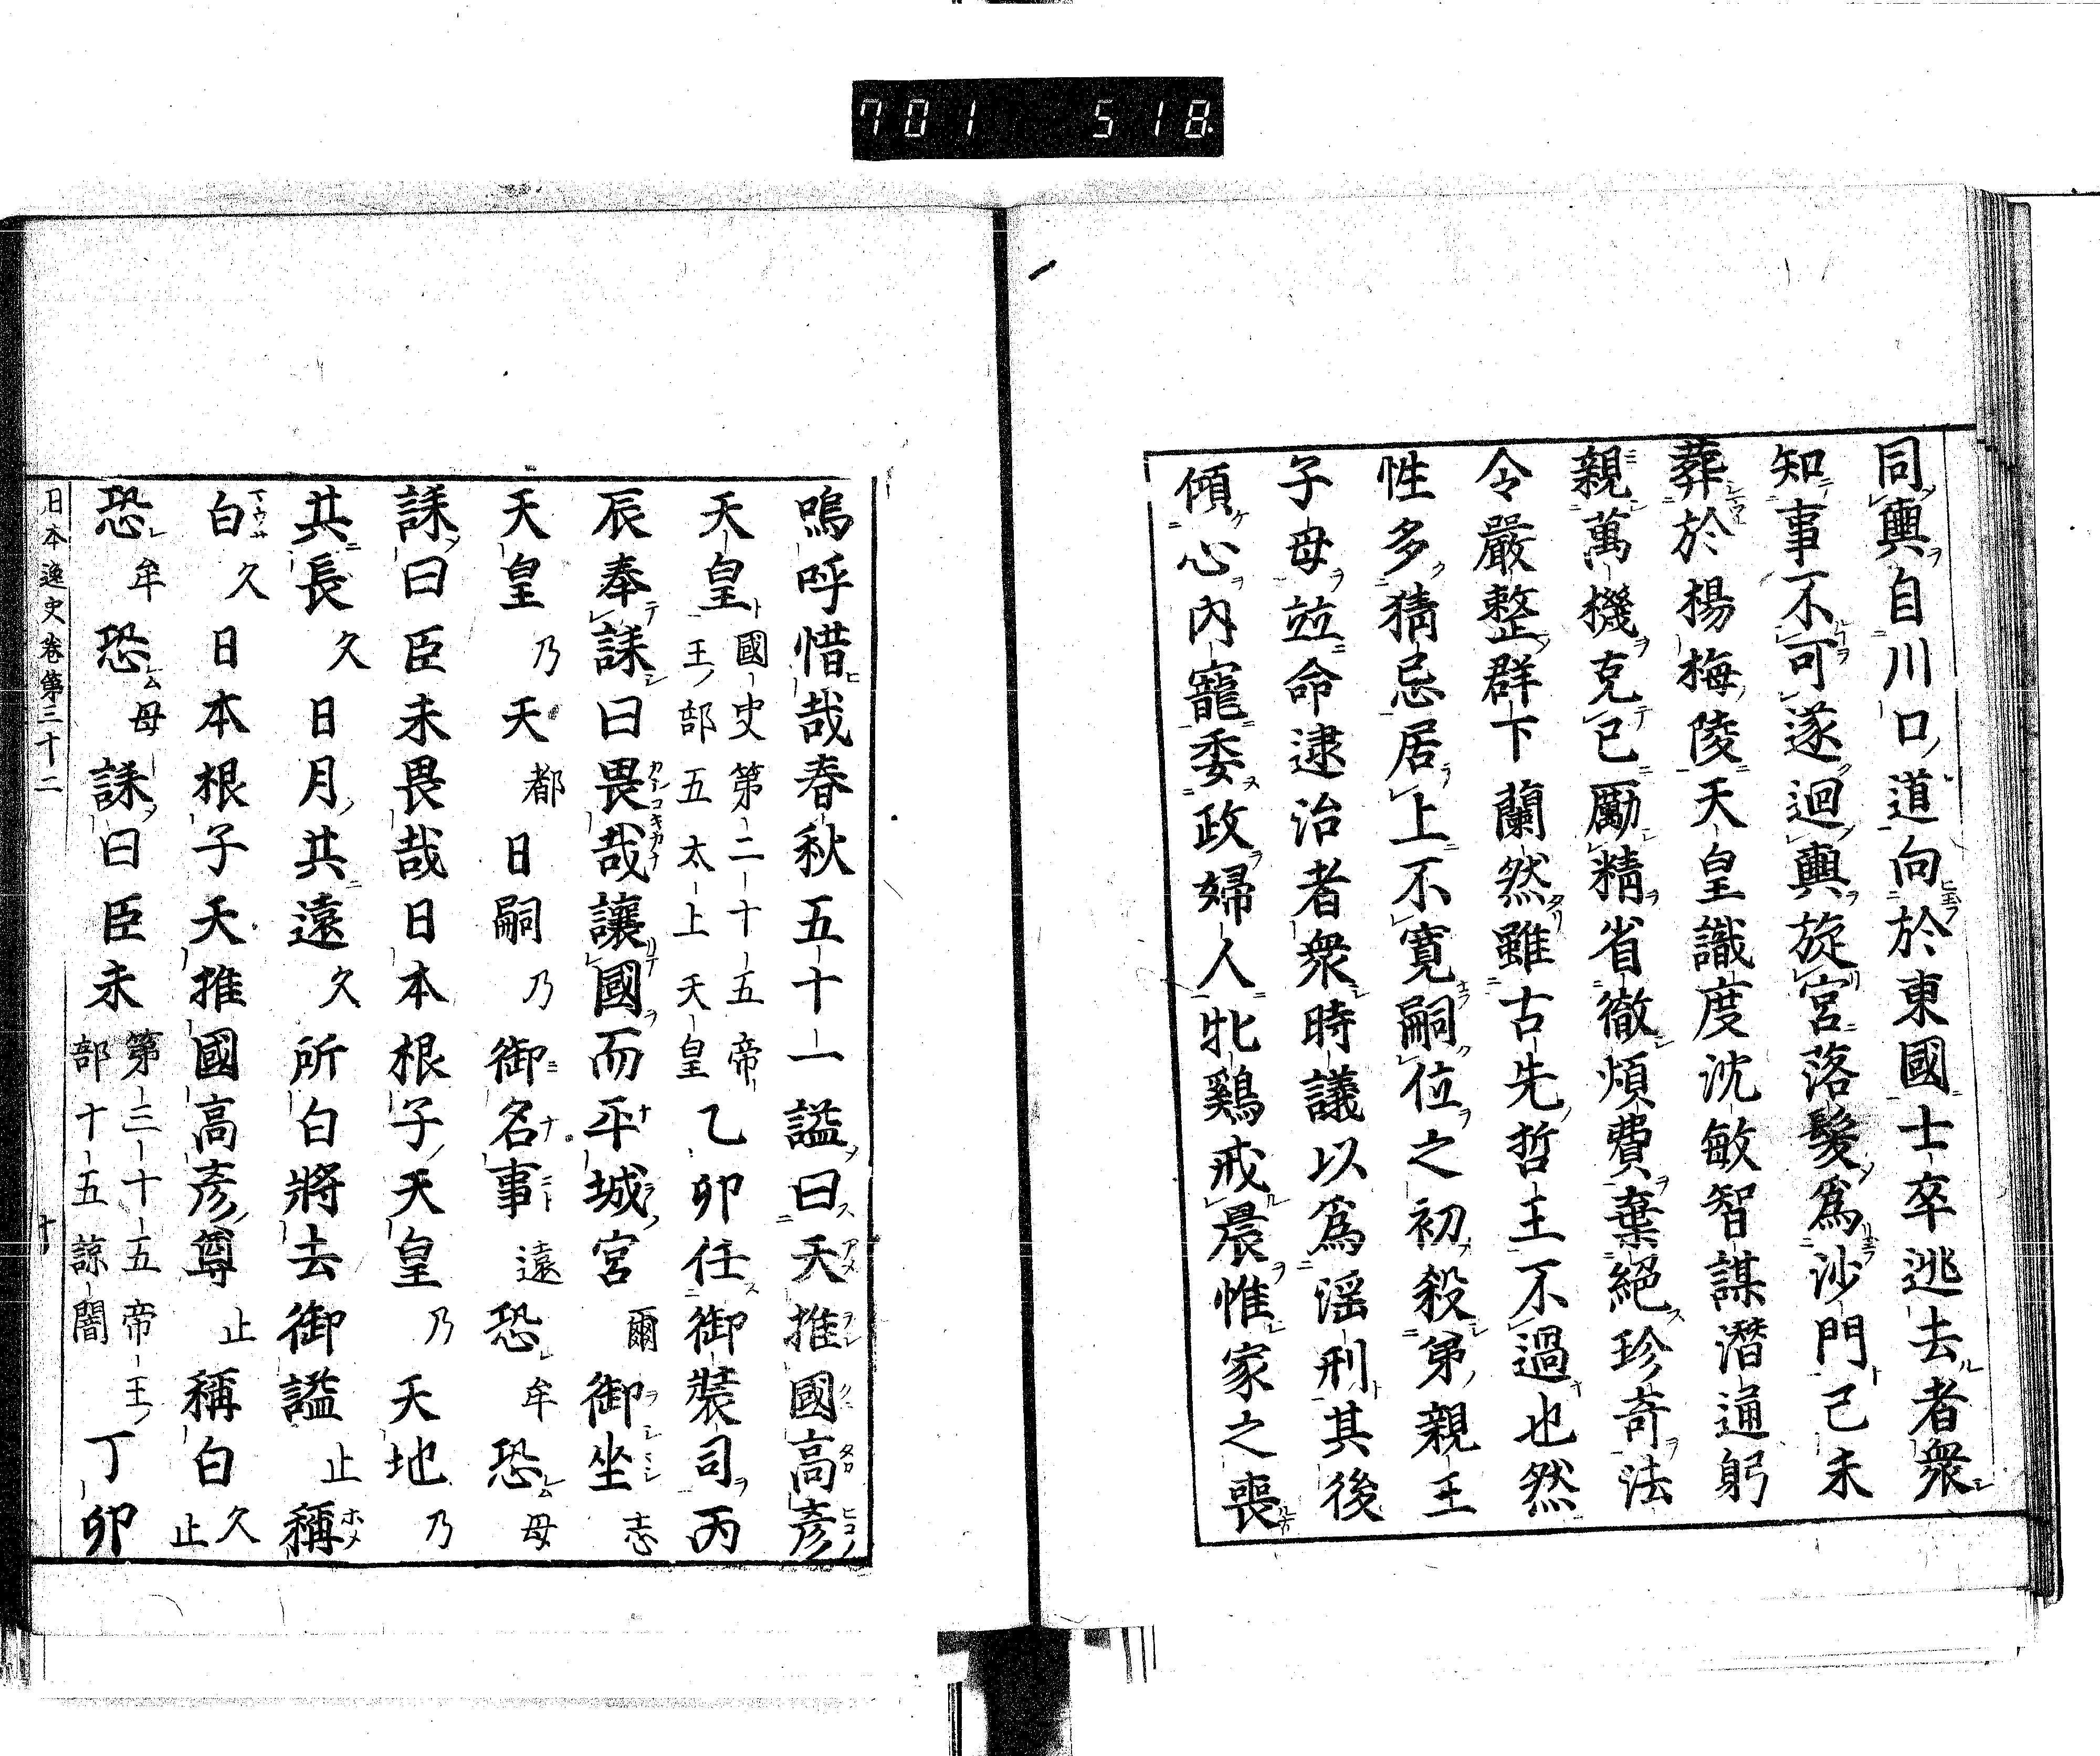 701 518
同輿自川口道向於東國士卒逃去者衆
知事不可遂迴輿旋宮落髮爲沙門己未
葬於楊梅陵天皇識度沈敏智謀潛通躬
親萬機克己勵精省徹煩費棄絕珍奇法
令嚴整群下蘭然雖古先哲王不過也然
性多猜忌居上不寛嗣位之初殺弟親王
子母並命逮治者衆時議以爲淫刑其後
傾心內寵委政婦人牝鷄戒晨惟家之喪
嗚呼惜哉春秋五十一謚曰天推國高彥
天皇國史第二十五帝王部五太上天皇乙卯任御裝司丙
辰奉誄曰畏哉讓國而平城宮爾御坐志
天皇乃天都日嗣乃御名事遠恐牟恐母
誄曰臣未畏哉日本根子天皇乃天地乃
共長久日月共遠久所白將去御謚止稱
白久日本根子天推國高彥尊止稱白久止
恐牟恐母誄曰臣未第三十五帝王部十五諒闇丁卯
日本逸史卷第三十二 十